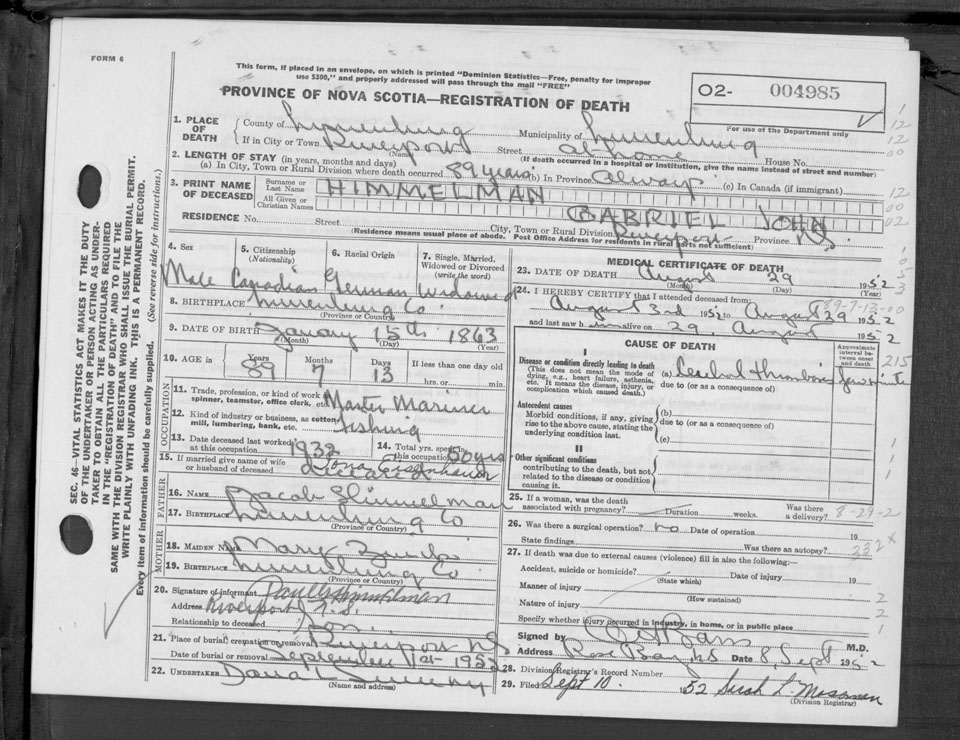 FORM 6
This form, if placed in an envelope, on which is printed "Dominion Statistics—Free, penalty for improper
use $300," and properly addressed will pass through the mail "FREE"
PROVINCE OF NOVA SCOTIA—REGISTRATION OF DEATH
O2- 004985
For use of the Department only
1. PLACE OF DEATH
County of Lunenburg Municipality of Lunenburg
If in City or Town Riverport Street at home House No.
(Name) (If death occurred in a hospital or institution, give the name instead of street and number)
2. LENGTH OF STAY (in years, months and days)
(a) In City, Town or Rural Division where death occurred 89 years (b) In Province always (c) In Canada (if immigrant)
3. PRINT NAME OF DECEASED
Surname or Last Name HIMMELMAN
All Given or Christian Names GABRIEL JOHN
RESIDENCE No. Street City, Town or Rural Division Riverport Province N.S.
(Residence means usual place of abode. Post Office Address for residents in rural parts not sufficient)
4. Sex Male
5. Citizenship (Nationality) Canadian
6. Racial Origin German
7. Single, Married, Widowed or Divorced (write the word) Widowed
8. BIRTHPLACE Lunenburg Co.
(Province or Country)
9. DATE OF BIRTH 15th 1863
(Month) (Day) (Year)
10. AGE in Years 89 Months 7 Days 13 If less than one day old hrs. or min.
OCCUPATION
11. Trade, profession, or kind of work as spinner, teamster, office clerk, etc. Master Mariner
12. Kind of industry or business, as cotton mill, lumbering, bank, etc. Fishing
13. Date deceased last worked at this occupation 1932
14. Total yrs. spent in this occupation 50 yrs
15. If married give name of wife or husband of deceased Eisenhauer
FATHER
16. NAME Jacob Himmelman
17. BIRTHPLACE Lunenburg Co.
(Province or Country)
MOTHER
18. MAIDEN NAME Mary
19. BIRTHPLACE Lunenburg Co
(Province or Country)
20. Signature of informant Himmelman
Address Riverport N.S.
Relationship to deceased Son
21. Place of burial, cremation or removal Riverport NS
Date of burial or removal September 1st 1952
22. UNDERTAKER Sweeny
(Name and address)
MEDICAL CERTIFICATE OF DEATH
23. DATE OF DEATH August 29 1952
(Month) (Day) (Year)
24. I HEREBY CERTIFY that I attended deceased from
August 3rd 1952 to August 29 1952
89-7-13-00
and last saw him alive on 29, August 1952
CAUSE OF DEATH
Approximate interval between onset and death
I
Disease or condition directly leading to death
(This does not mean the mode of dying, e.g., heart failure, asthenia, etc. It means the disease, injury, or complication which caused death.)
(a) Cerebral thrombosis
due to (or as a consequence of)
Antecedent causes
Morbid conditions, if any, giving rise to the above cause, stating the underlying condition last.
(b)
due to (or as a consequence of)
(c)
II
Other significant conditions
contributing to the death, but not related to the disease or condition causing it.
25. If a woman, was the death associated with pregnancy? Duration weeks. Was there a delivery?
8-29-2
26. Was there a surgical operation? no Date of operation 19
State findings Was there an autopsy?
232
27. If death was due to external causes (violence) fill in also the following:
Accident, suicide or homicide? Date of injury 19
(State which)
Manner of injury
(How sustained)
Nature of injury
Specify whether injury occurred in industry, in home, or in public place
Signed by M.D.
Address Rose Bay, N.S. Date 8, Sept 1952
28. Division Registrar's Record Number
29. Filed Sept 10. 1952 Sarah L. Mossman
(Division Registrar)
SEC. 46—VITAL STATISTICS ACT MAKES IT THE DUTY
OF THE UNDERTAKER OR PERSON ACTING AS UNDER-
TAKER TO OBTAIN ALL THE PARTICULARS REQUIRED
IN THE "REGISTRATION OF DEATH" AND TO FILE THE
SAME WITH THE DIVISION REGISTRAR WHO SHALL ISSUE THE BURIAL PERMIT.
WRITE PLAINLY WITH UNFADING INK. THIS IS A PERMANENT RECORD.
Every item of information should be carefully supplied. (See reverse side for instructions.)